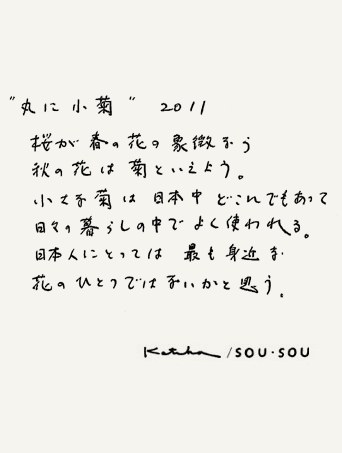 "丸に小菊" 2011
桜が春の花の象徴なら
秋の花は菊といえよう。
小さな菊は 日本中 どこにでもあって
日々の暮らしの中で よく使われる。
日本人にとっては 最も身近な
花のひとつではないかと思う。
/SOU・SOU